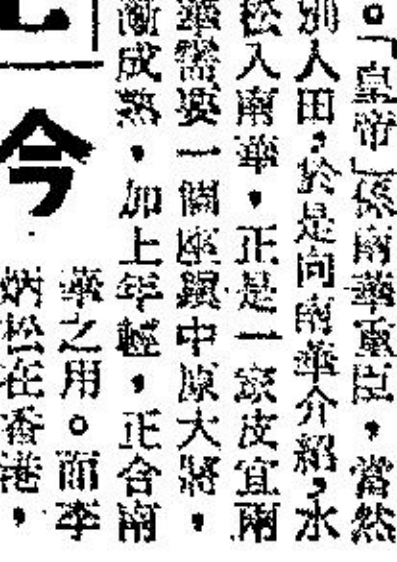 。「皇帝」係南華重臣，當然
別人田，於是向南華介紹，水
松入南華，正是一家皮宜兩
華需要一個座鎮中原大將，
漸成熟，加上年輕，正合南
華之用。而李
炳松在香港，
今